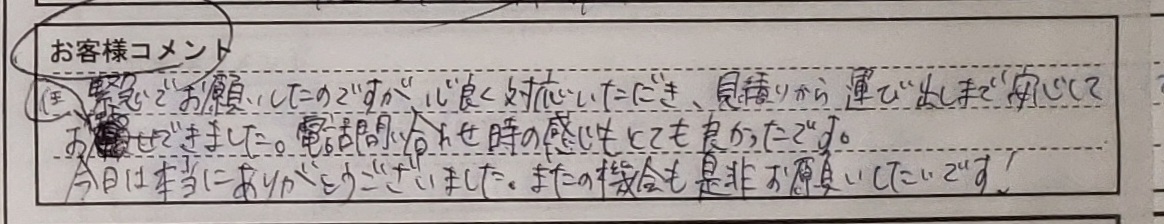 お客様コメント
緊急でお願いしたのですが、心良く対応いただき、見積りから運び出しまで安心して
お任せできました。電話問い合わせ時の感じもとても良かったです。
今日は本当にありがとうございました。またの機会も是非お願いしたいです!